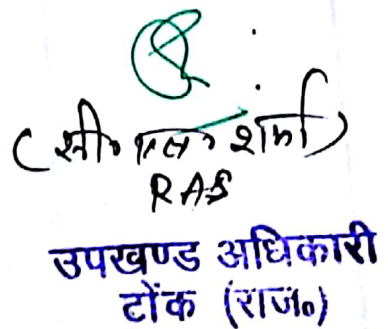 (सी० एल० शर्मा)
RAS
उपखण्ड अधिकारी
टोंक (राज०)